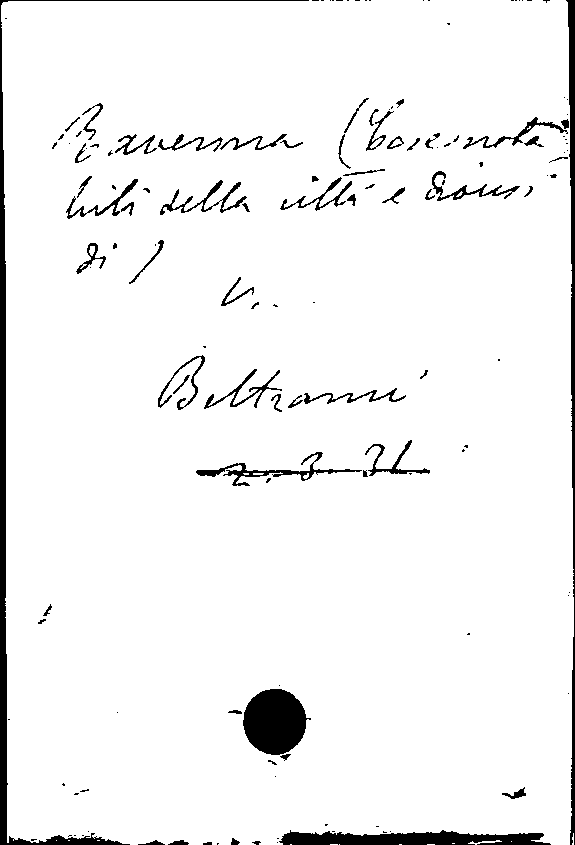 Ravenna (Cose nota
bili della città e diocesi
di )
V.
Beltrami
2. 3 31